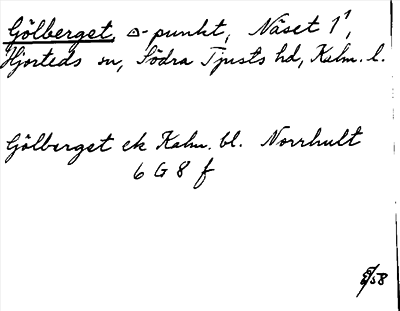 Gölberget, △-punkt, Näset 1¹,
Hjorteds sn, Södra Tjusts hd, Kalm. l.
Gölberget ek Kalm. bl. Norrhult
6 G 8 f